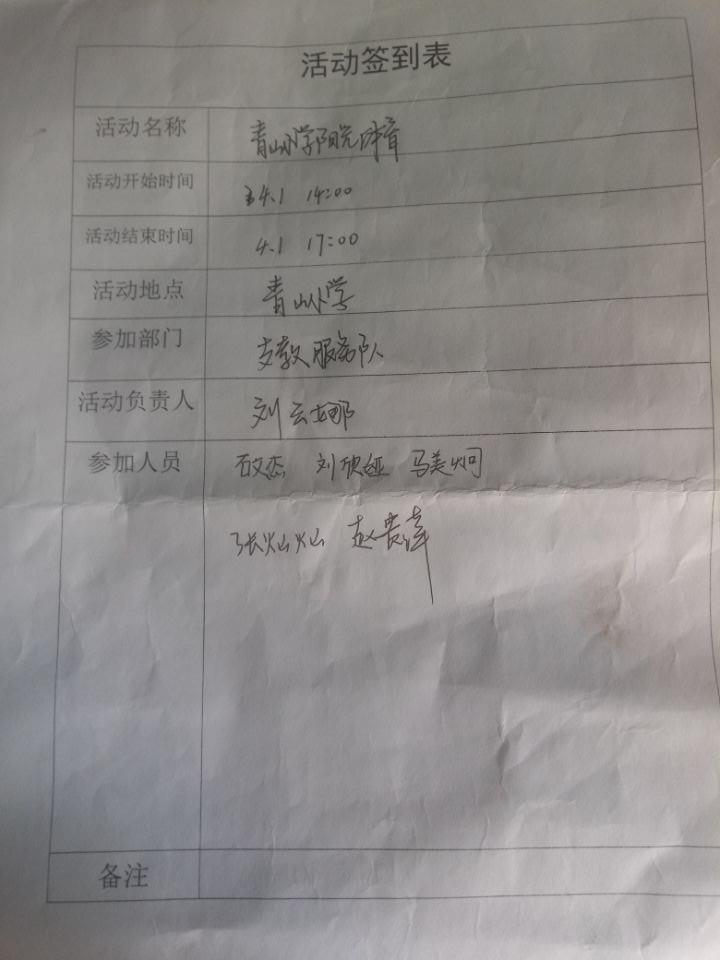 活动签到表
活动名称 青山小学阳光体育
活动开始时间 4.1 14:00
活动结束时间 4.1 17:00
活动地点 青山小学
参加部门 支教服务队
活动负责人 刘云娜
参加人员 石文杰 刘欣娅 马美炯
张灿灿 赵贵萍
备注